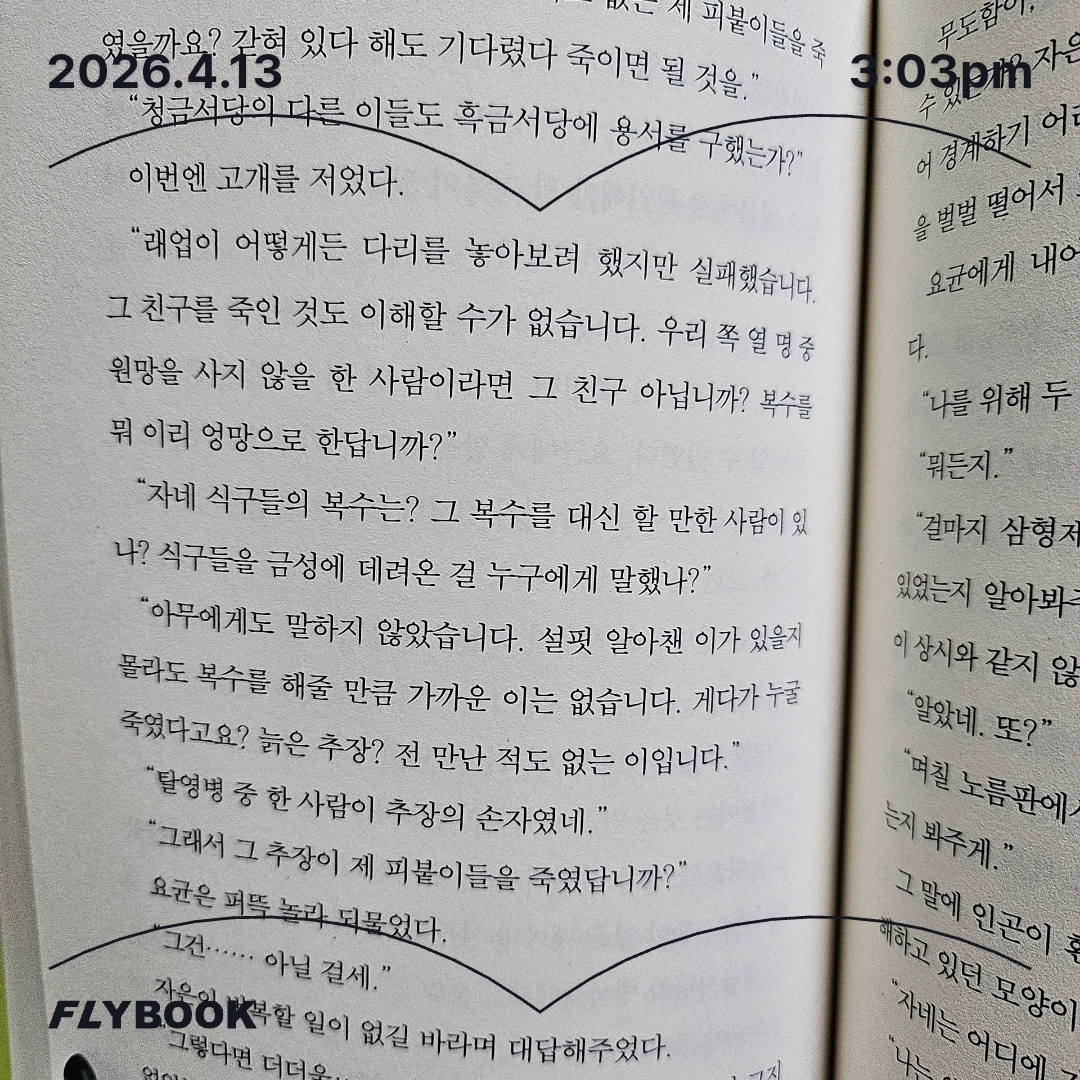 2026.4.13
3:03pm
없는 제 피붙이들을 죽
였을까요? 갇혀 있다 해도 기다렸다 죽이면 될 것을.”
“청금서당의 다른 이들도 흑금서당에 용서를 구했는가?”
이번엔 고개를 저었다.
“래업이 어떻게든 다리를 놓아보려 했지만 실패했습니다.
그 친구를 죽인 것도 이해할 수가 없습니다. 우리 쪽 열 명 중
원망을 사지 않을 한 사람이라면 그 친구 아닙니까? 복수를
뭐 이리 엉망으로 한답니까?”
“자네 식구들의 복수는? 그 복수를 대신 할 만한 사람이 있
나? 식구들을 금성에 데려온 걸 누구에게 말했나?”
“아무에게도 말하지 않았습니다. 설핏 알아챈 이가 있을지
몰라도 복수를 해줄 만큼 가까운 이는 없습니다. 게다가 누굴
죽였다고요? 늙은 추장? 전 만난 적도 없는 이입니다.”
“탈영병 중 한 사람이 추장의 손자였네.”
“그래서 그 추장이 제 피붙이들을 죽였답니까?”
요균은 퍼뜩 놀라 되물었다.
“그건…… 아닐 걸세.”
자은이 반복할 일이 없길 바라며 대답해주었다.
“그렇다면 더더욱
무도함이,
수 있는가? 자은
어 경계하기
을 벌벌 떨어서
요균에게
다.
“나를 위해 두
“뭐든지.”
“걸마지 삼형제
있었는지 알아봐주
이 상시와 같지 않
“알았네. 또?”
“며칠 노름판에
는지 봐주게.”
그 말에 인곤이
해하고 있던 모양이
“자네는 어디에
“나는
FLYBOOK